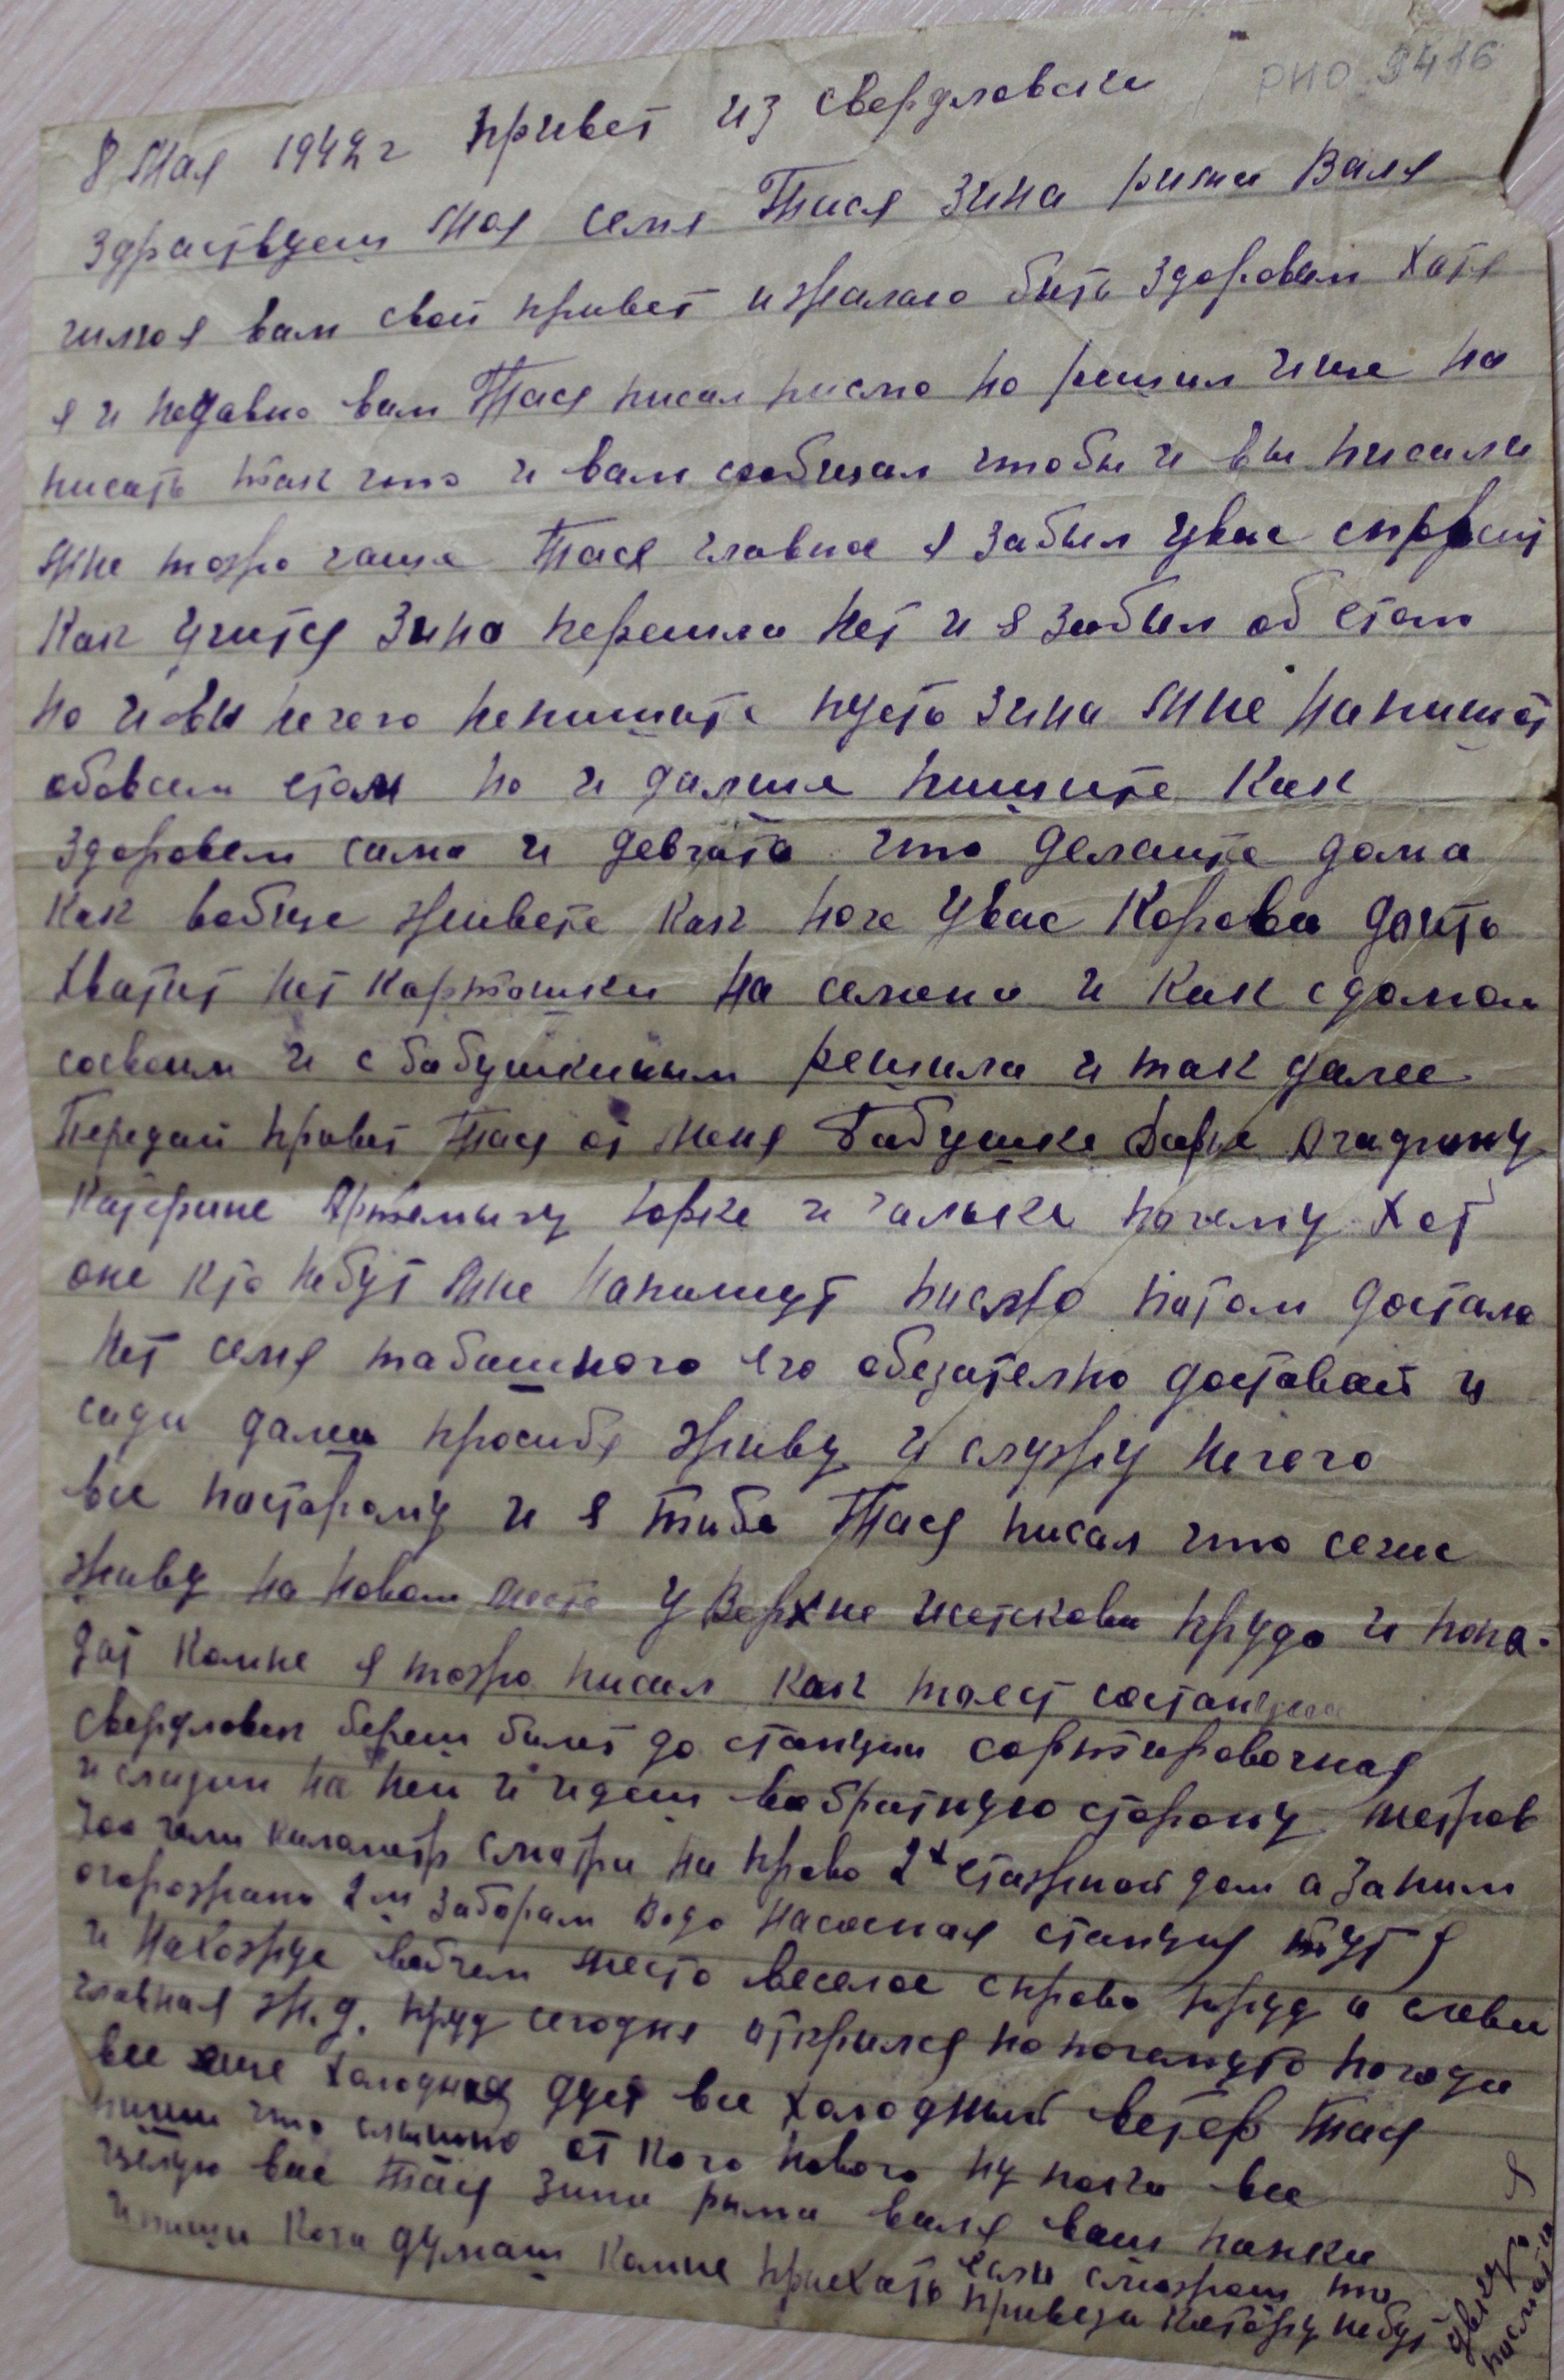 РНО 9416
8 Мая 1942 г привет из свердловска
Здраствуеш Моя семя Тася Зина рима Валя
шлю я вам свой привет и жалаю быть здоровым Хотя
я и недавно вам Тася писал писмо но решил ише на
писать так што и вам сообщал штобы и вы писали
Мне тожро чаше Тася главное я забыл увас спросит
Как учится Зина перешла Нет и я забыл об етом
но и вы нечего непишите пусть Зина Мне Напишет
обовсем етом но и далше пишите Как
здоровем сама и девчата што делаите дома
Как вобще живете Как пока увас Корова доить
Хватит нет Картошки На семена и Как с домом
сосвоим и с бабушкиным решила и так далее
Передай привет Тася от Меня Бабушке Дарье
Катерине Артемычу Юрке и гальке почему Хот
оне кто небуд Мне Напишут писмо патом достала
Нет семя табашного его обезателно доставай и
сади далее просибя живу и служу Нечего
все постарому и я тибе Тася писал што сечас
живу На Новом месте у Верхне исетскова пруда и попа-
дат Комне я тожро писал как тоест состанции
Свердловск береш билет до станции сортировочная
и слизаи На Ней и идеш вобратную сторону метров
700 или километр сматри На право 2х етажной дом а заним
огорожрано 2м забором водо Насосная станция тут я
и Нахожусе вобчем место веселое справо пруд а слева
главная ж.д. пруд сегодня открылся но почемуто погода
все еше Холодная дует все Холодный ветер Тася
пиши што слышно от Кого Нового Ну пока все
целую вас Тася Зина рима валя ваш папка
и пиши Кога думаш Комне приехать если сможреш то
привези Которую небуд